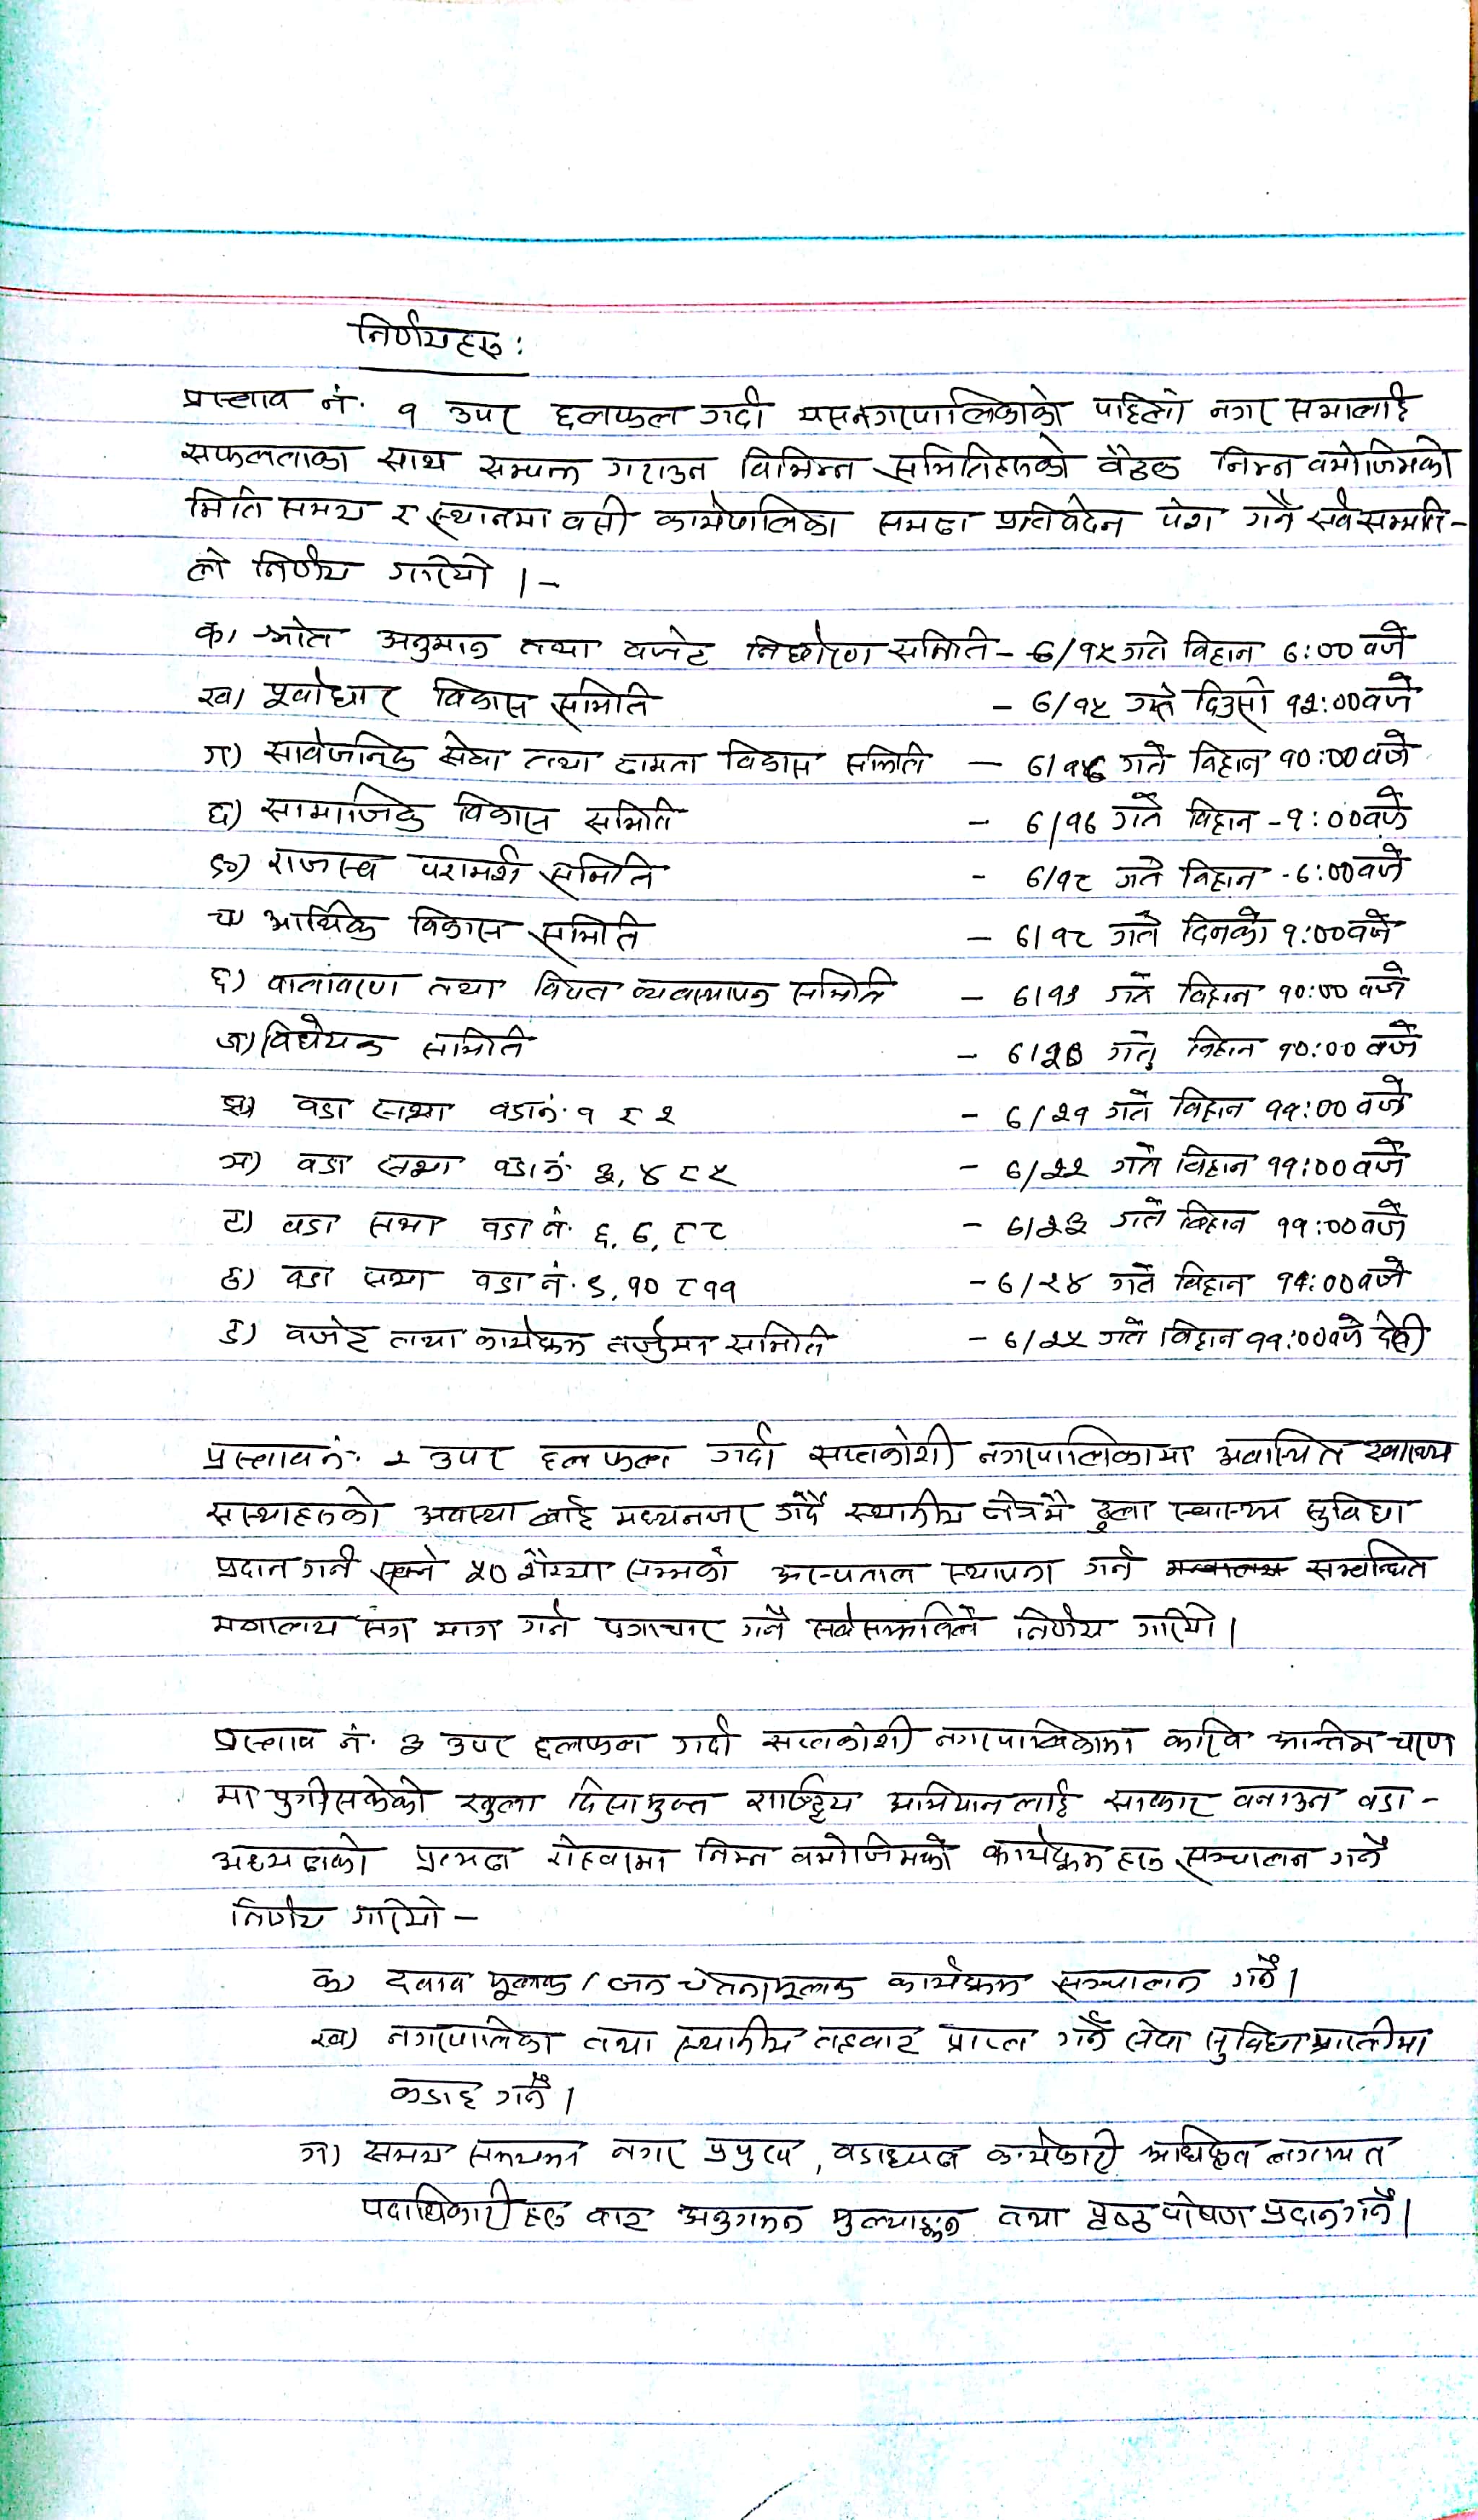 निर्णयहरु :
प्रस्ताव नं. १ उपर छलफल गर्दा यस नगरपालिकाको पहिलो नगर सभालाई
सफलताका साथ सम्पन्न गराउन विभिन्न समितिहरुको वैठक निम्न वमोजिमको
मिति समय र स्थानमा वसी कार्यपालिका समक्ष प्रतिवेदन पेश गर्ने सर्वसम्मति-
ले निर्णय गरियो ।-
क) श्रोत अनुमान तथा वजेट निर्धारण समिति - ७/१५ गते विहान ७:०० वजे
ख) पूर्वाधार विकास समिति - ७/१५ गते दिउसो १२:०० वजे
ग) सार्वजनिक सेवा तथा क्षमता विकास समिति - ७/१६ गते विहान १०:०० वजे
घ) सामाजिक विकास समिति - ७/१७ गते विहान - १:०० वजे
ङ) राजस्व परामर्श समिति - ७/१८ गते विहान - ७:०० वजे
च) आर्थिक विकास समिति - ७/१८ गते दिनको १:०० वजे
छ) वातावरण तथा विपत व्यवस्थापन समिति - ७/१९ गते विहान १०:०० वजे
ज) विधेयक समिति - ७/२० गते विहान १०:०० वजे
झ) वडा सभा वडा नं. १ र २ - ७/२१ गते विहान ११:०० वजे
ञ) वडा सभा वडा नं. ३, ४ र ५ - ७/२२ गते विहान ११:०० वजे
ट) वडा सभा वडा नं. ६, ७, र ८ - ७/२३ गते विहान ११:०० वजे
ठ) वडा सभा वडा नं. ९, १० र ११ - ७/२४ गते विहान ११:०० वजे
ड) वजेट तथा कार्यक्रम तर्जुमा समिति - ७/२५ गते विहान ११:०० वजे देखी
प्रस्ताव नं. २ उपर छलफल गर्दा सप्तकोशी नगरपालिकामा अवस्थित स्वास्थ्य
संस्थाहरुको अवस्था लाई मध्यनजर गर्दै स्थानीय क्षेत्रमै ठुला स्वास्थ्य सुविधा
प्रदान गर्न सक्ने ५० शैय्या सम्मको अस्पताल स्थापना गर्न सम्वन्धित
मन्त्रालय संग माग गर्न पत्राचार गर्ने सर्वसम्मतिले निर्णय गरियो ।
प्रस्ताव नं. ३ उपर छलफल गर्दा सप्तकोशी नगरपालिकामा करिव अन्तिम चरण
मा पुगीसकेको खुला दिसामुक्त राष्ट्रिय अभियान लाई साकार वनाउन वडा -
अध्यक्षको प्रत्यक्ष रोहवरमा निम्न वमोजिमको कार्यक्रम हरु सञ्चालन गर्ने
निर्णय गरियो -
क) दवाव मूलक / जन चेतनामूलक कार्यक्रम सञ्चालन गर्ने ।
ख) नगरपालिका तथा स्थानीय तहवाट प्राप्त गर्ने सेवा सुविधा प्राप्तीमा
कडाइ गर्ने ।
ग) समय समयमा नगर प्रमुख, वडाध्यक्ष कार्यकारी अधिकृत लगायत
पदाधिकारी हरु वाट अनुगमन मुल्याङ्कन तथा पृष्ठपोषण प्रदान गर्ने ।